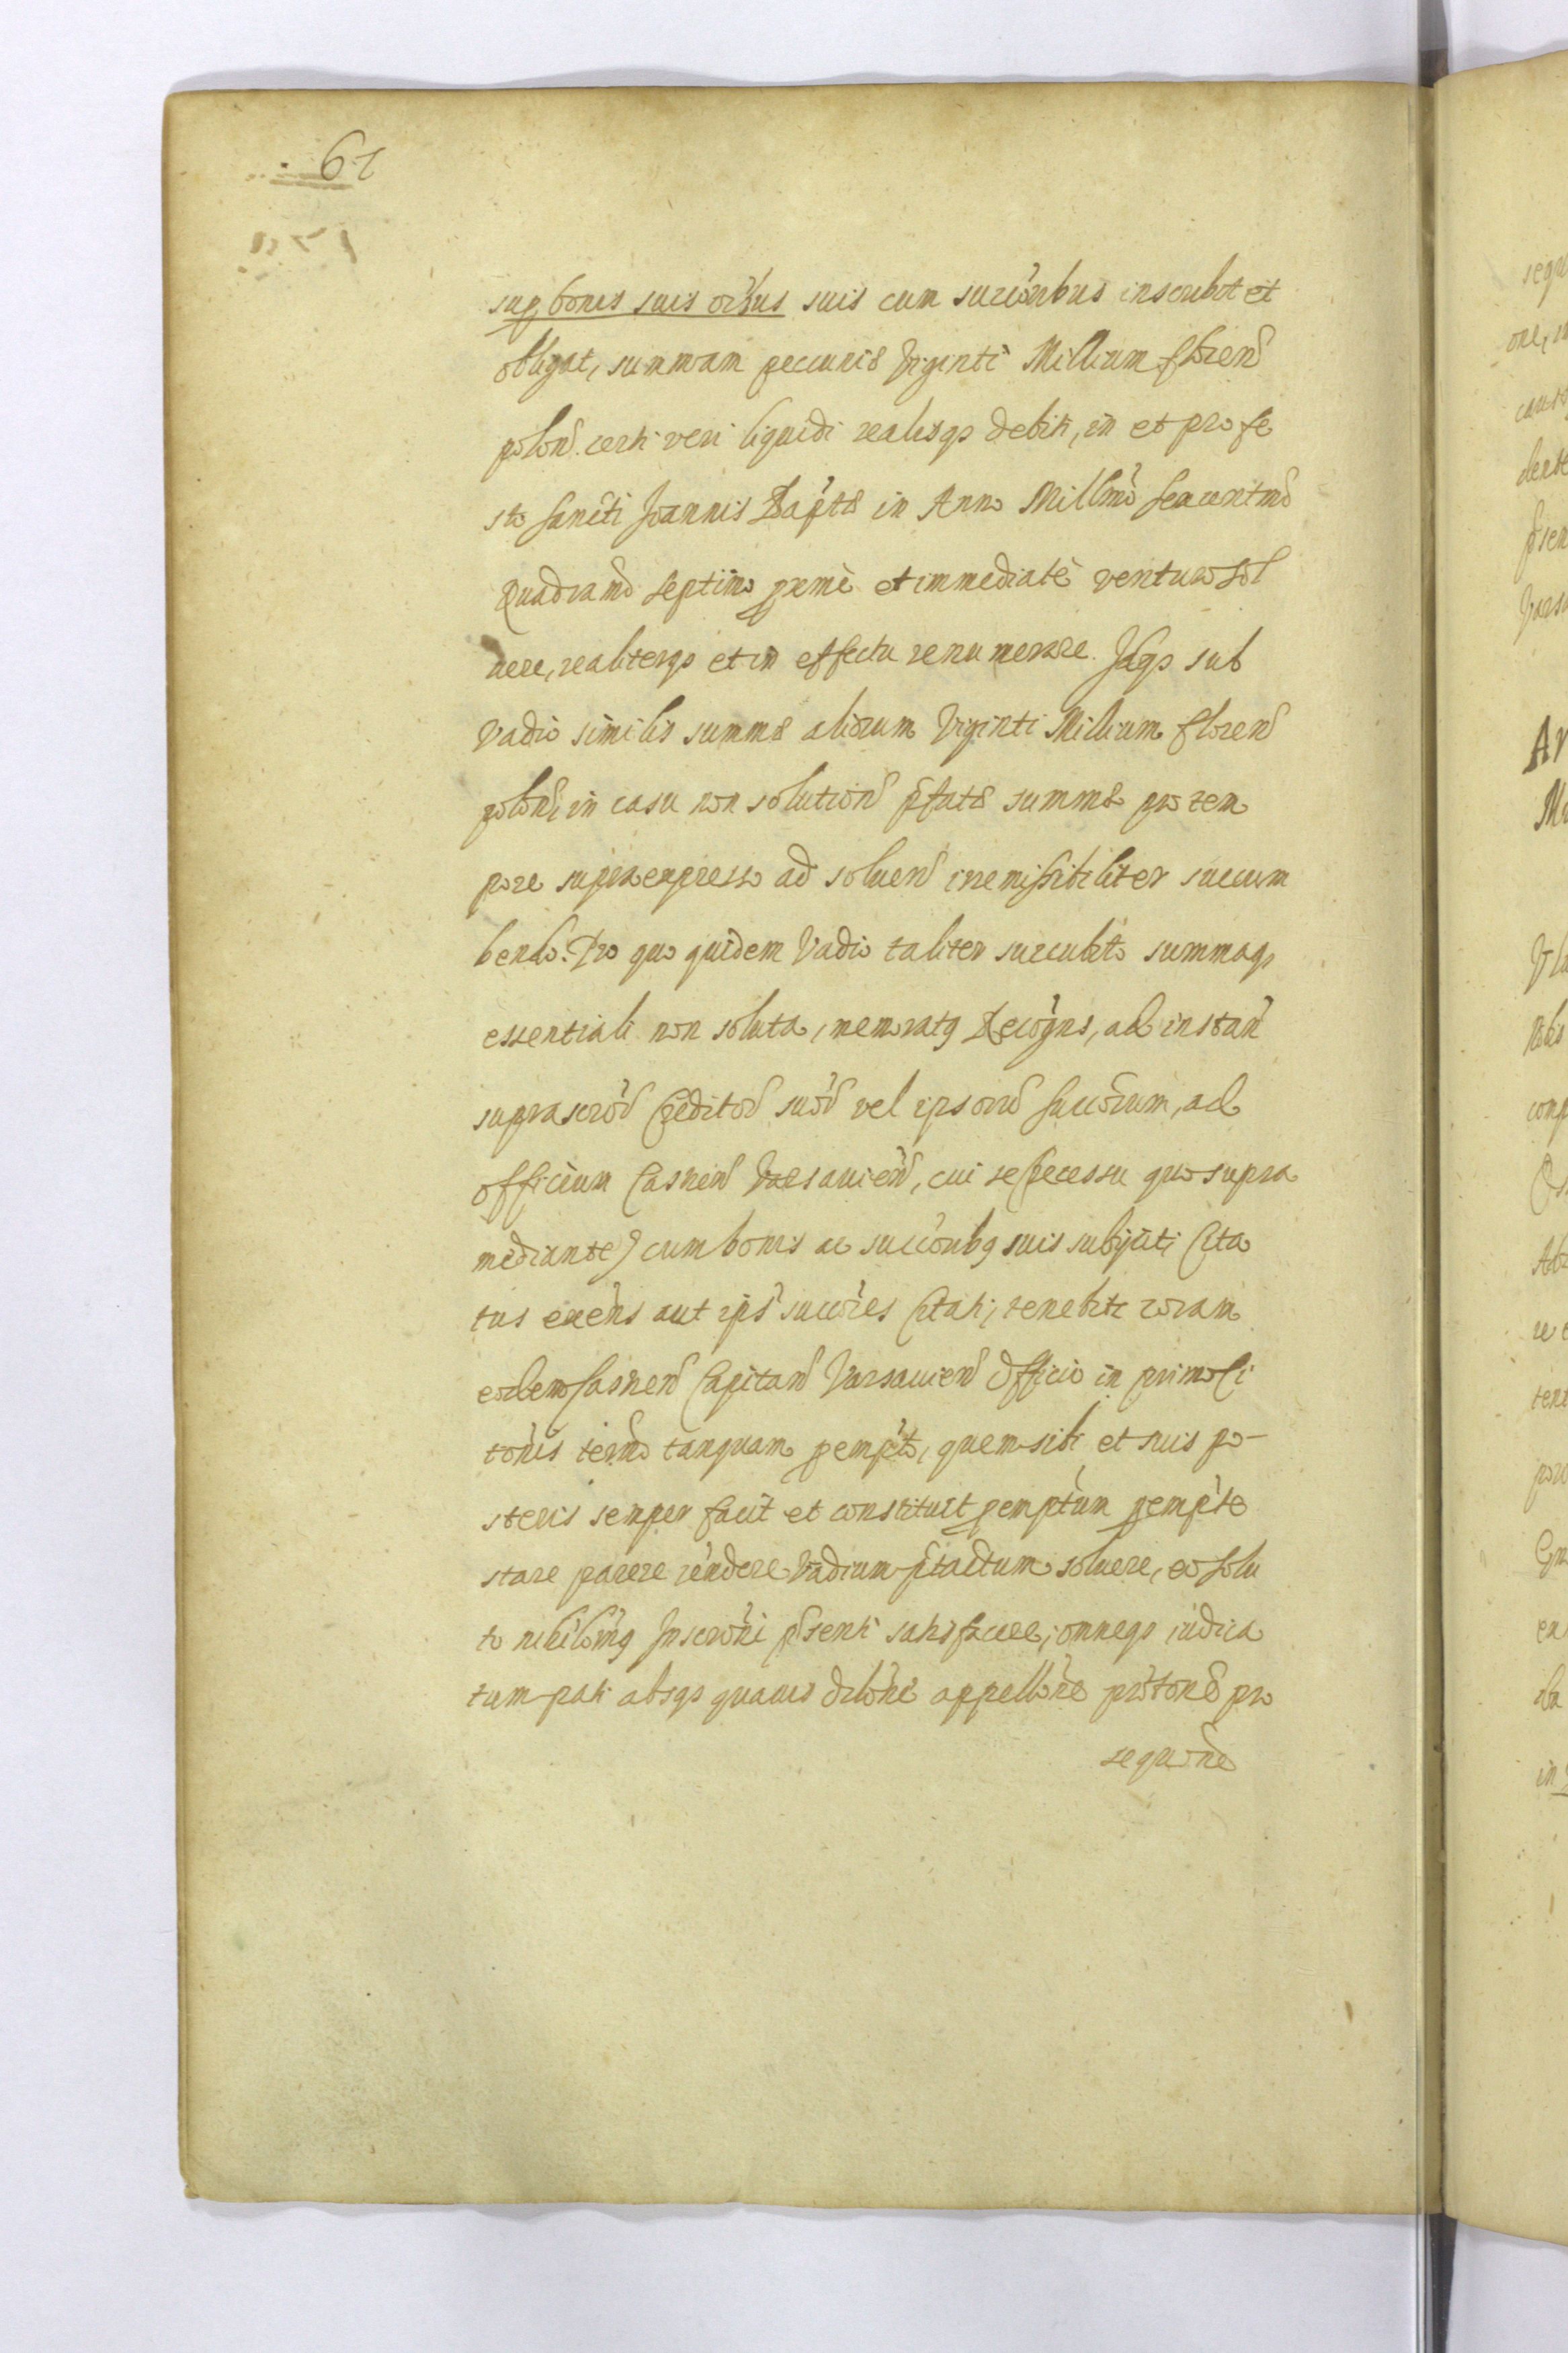 61
sup bonis suis oībus suis cum succōribus inscribit et
obligat, summam pecuniæ Viginti Millium floren
polon. certi veri liquidi realisq debiti, in et pro fe
sto Sancti Joannis Baptæ in Anno Millmo sexcentmo
Quadragmo septimo pxme et immediate venturo sol
uere, realiterq et in effectu renumerare. Idq sub
Vadio similis summæ aliorum Viginti Millium floren
polon, in casu non solution pfatæ summæ pro tem
pore supraexpresso ad soluen irremissibiliter succum
bendo. Pro quo quidem Vadio taliter succubito summaq
essentiali non soluta, memoratq Recogns, ad instan
suprascrōr Creditor suor vel ipsorū succorum, ad
officium Casnen Varsauien, cui se recessu quo supra
mediante cum bonis ac succoribq suis subijcit, Cita
tus exens aut ips succōres Citati, tenebitr coram
eodem Casnen Capitan Varsauien Officio in primo Ci
tōnis termo tanquam pempto, quem sibi et suis po-
steris semper facit et constituit pemptum pempte
stare parere rendere Vadium ptactum soluere, eo solu
to nihilominq Inscroni psenti satisfacere, omneq iudica
tum pati absq quauis dilone appellone protone pro
sequone